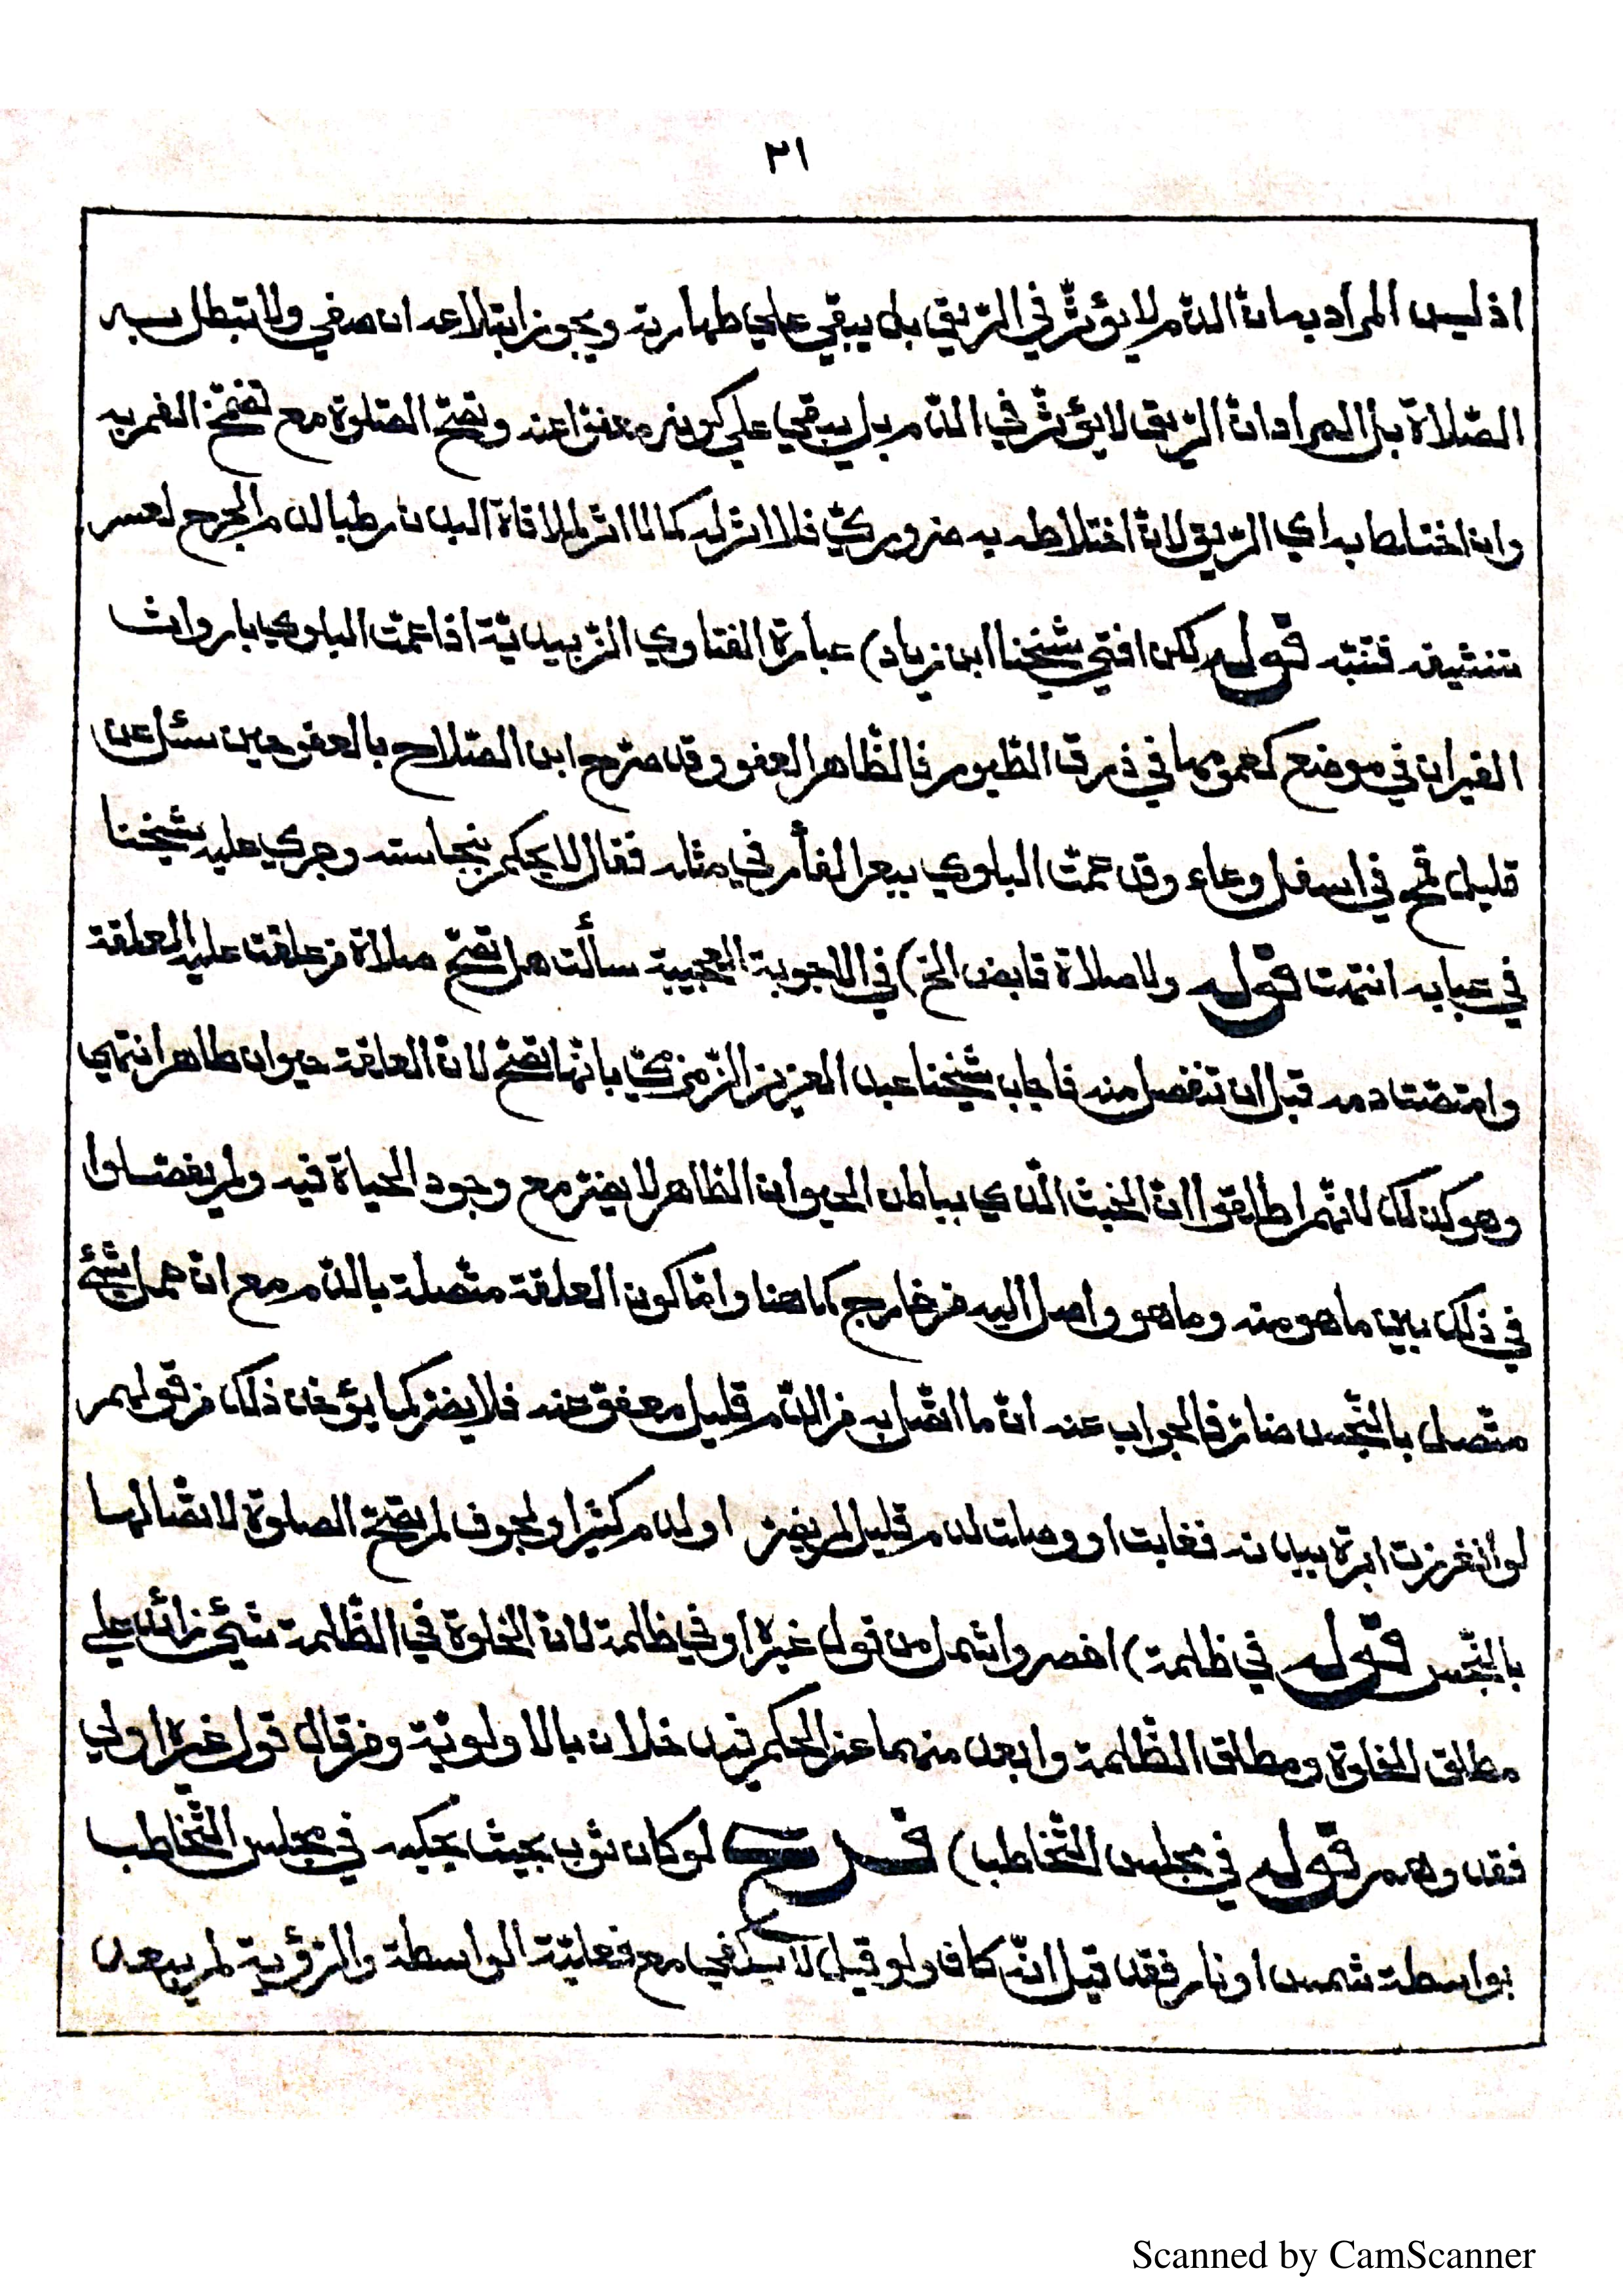 ٢١
اذ ليس المراد به ان الدّم لا يؤثّر في الرّيق بل يبقي علي طهارته ويجوز ابتلاعه ان صفي ولا تبطل به
الصّلاة بل المراد ان الرّيق لا يؤثّر في الدّم بل يبقي علي كونه معفوّا عنه وتصحّ الصّلوة مع تضمّخ الفم به
وان اختلط به اي الرّيق لانّ اختلاطه به ضروريّ فلا اثر له كما لا اثر لملاقاة البدن رطبا لدم الجرح لعسر
تنشيفه فتنبّه قوله لكن افتي شيخنا ابن زياد) عبارة الفتاوي الزّبيديّة اذا عمّت البلوي باروات
الفيران في موضع كعمومها في ذرق الطّيور فالظّاهر العفو وقد صرّح ابن الصّلاح بالعفو حين سئل عن
قليل قمح في اسفل وعاء وقد عمّت البلوي ببعر الفأر في مثله فقال لا يحكم بنجاسته وجري عليه شيخنا
في عبابه انتهت قوله ولا صلاة قابض الخ) في الاجوبة العجيبة سألت هل تصحّ صلاة من علقت عليه العلقة
وامتصّت دمه قبل ان تنفصل منه فاجاب شيخنا عبد العزيز الزّمزميّ بانّها تصحّ لانّ العلقة حيوان طاهر انتهي
وهو كذلك لانّهم اطلقوا انّ الخبث الّذي بباطن الحيوان الطّاهر لا يضرّ مع وجود الحياة فيه ولم يفصّلوا
في ذلك بين ما هو منه وما هو واصل اليه من خارج كما هنا وامّا كون العلقة متّصلة بالدّم مع انّ حمل شيئ
متّصل بالنّجس ضارّ فالجواب عنه انّ ما اتّصل به من الدّم قليل معفوّ عنه فلا يضرّ كما يؤخذ ذلك من قولهم
لو انغرزت ابرة ببدنه فغابت او وصلت لدم قليل لم يضرّ او لدم كثير او لجوف لم تصحّ الصلوة لاتّصالها
بالنّجس قوله في ظلمة) اخصر واشمل من قول غيره او في ظلمة لانّ الخلوة في الظّلمة شيئ زائد علي
مطلق الخلوة ومطلق الظّلمة وابعد منهما عن الحكم فيدخلان بالاولويّة ومن قال قول غيره اولي
فقد وهم قوله في مجلس التّخاطب) فرع لو كان ثوب بحيث يحكيه في مجلس التّخاطب
بواسطة شمس او نار فقد قيل انّه كاف ولو قيل لا يكفي مع فعليّة الواسطة والرّؤية لم يبعد
Scanned by CamScanner